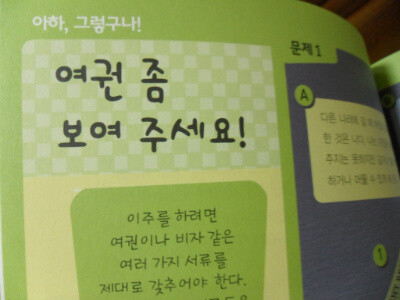 아하, 그렇구나!
여권 좀
보여 주세요!
이주를 하려면
여권이나 비자 같은
여러 가지 서류를
제대로 갖추어야 한다.
문제 1
A
다른 나라에 갈
한 것은
주지는 못하지만
하거나 머물 수 있게
1